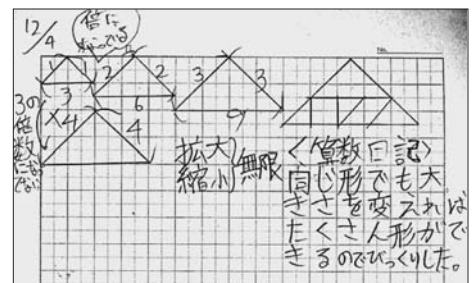 12/4
倍に
なっている
No.
1 1 2 2 3 3
3 6 9
×4 4
3の倍数になってない
拡大
縮小
無限
〈算数日記〉
同じ形でも大
きさを変えれば
たくさん形がで
きるのでびっくりした。